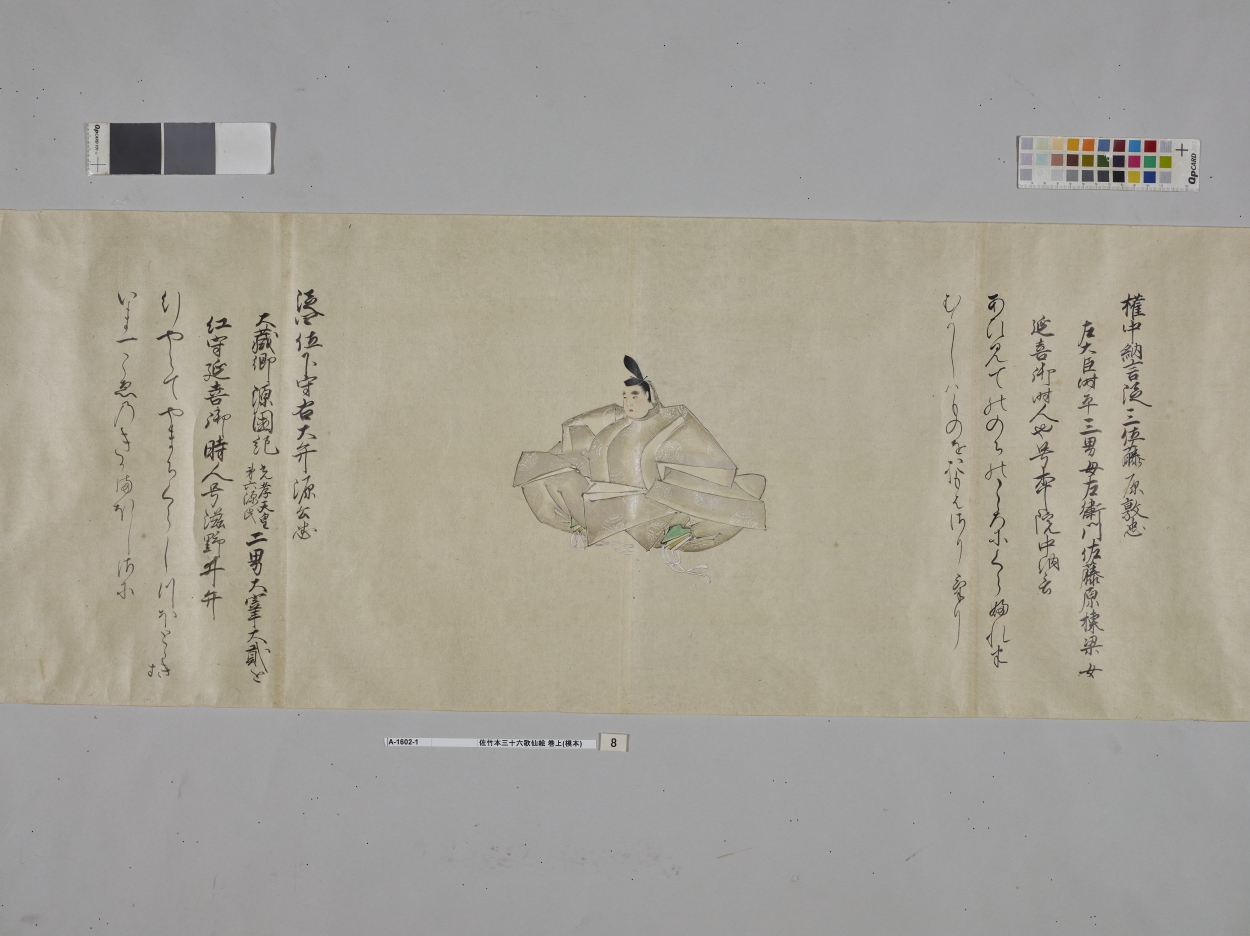 権中納言従三位藤原敦忠
左大臣時平三男母左衛門佐藤原棟梁女
延喜御時人也号本院中納言
あひ見てのゝちのこゝろにくらふれは
むかしはものをおもはさりけり
従四位下守右大弁源公忠
大蔵卿源国紀
光孝天皇
第六源氏
二男大宰大貳と
延喜御時人号滋野井弁
ゆきやらてやまちくらしつほとゝきす
いま一こゑのきかまほしさに
QpCARD
QpCARD
A-1602-1 佐竹本三十六歌仙絵 巻上(模本) 8